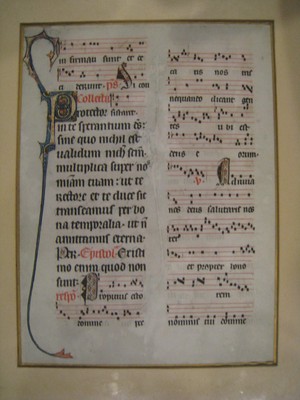 infirmati sunt et ce
ciderunt. ps Si con
Collecta
Protector
in te sperantium ds
sine quo nichil est
validum nich scm
multiplica super nos
miam tuam: ut te re
rectore et te duce sic
transeamus per bo
na temporalia. ut n
amittamus eterna
Per. Epistola. Existi
mo enim quod non
sunt.
resp Propicius esto
domine pec
ca tis nos
nequando dicant gen
tes u bi est
deus e orum
V Adiuva
nos deus salutaris nos
et propter hono
rem
nominis tui domine